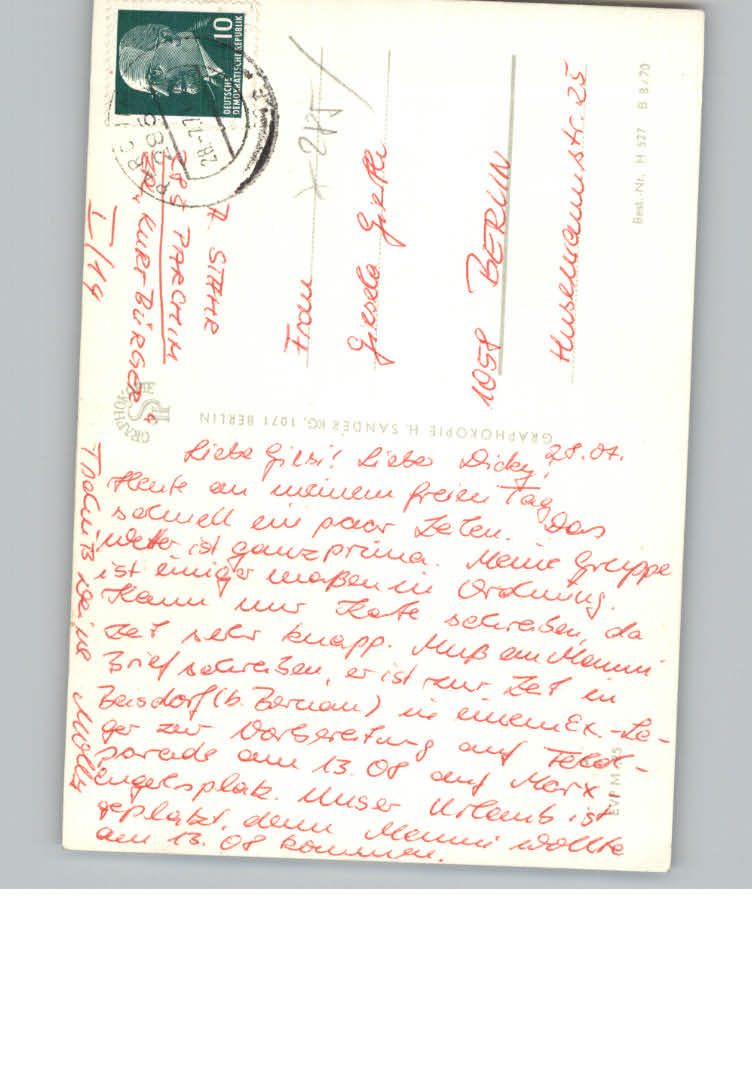 Liebe Gilsi! Lieber Dicky! 28.07.
Heute an meinem freien Tag
schnell ein paar Zeilen. Das
Wetter ist ganz prima. Meine Gruppe
ist einiger maßen in Ordnung.
Kann nur Karte schreiben, da
Zeit sehr knapp. Muß an Manni
Brief schreiben, er ist zur Zeit in
(b. Bernau) in einem Ex.-La-
ger zur Vorbereitung auf
parade am 13.08 auf Marx
engelsplatz. Unser Urlaub ist
geplatzt, denn Manni wollte
am 13.08 kommen.
Tschüß Deine Molly
10
DEUTSCHE
DEMOKRATISCHE REPUBLIK
28.-7.
A. STAHR
ZPL PARCHIM
KURT BÜRGER
I/14
x 2185
Frau
Gisela
1058 BERLIN
Husemannstr. 25
GRAPHOKOPIE H. SANDER KG, 1071 BERLIN
Best.-Nr. H 527 B 8/70